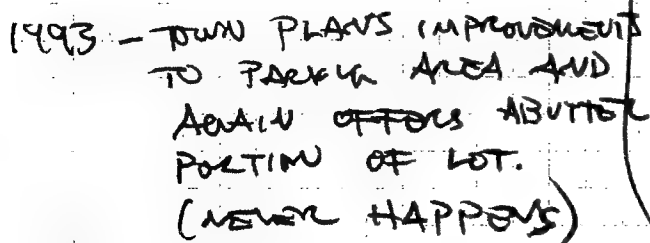 1993 - TOWN PLANS IMPROVEMENTS
TO PARKING AREA AND
AGAIN OFFERS ABUTTER
PORTION OF LOT.
(NEVER HAPPENS)